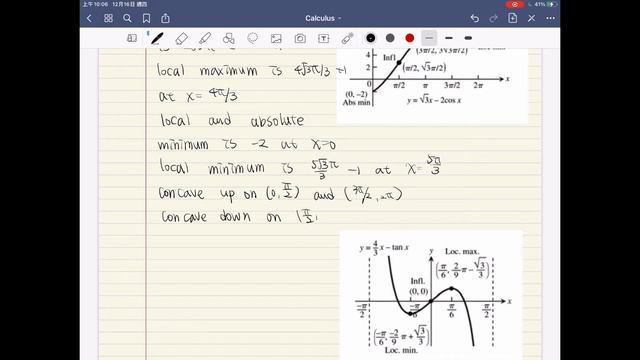 上午10:06 12月16日 週四
Calculus
local maximum is 4√3π/3 +1
at x = 4π/3
local and absolute
minimum is -2 at x=0
local minimum is 5√3π/3 -1 at x = 5π/3
concave up on (0, π/2) and (3π/2, 2π)
concave down on (π/2,
(3π/2, 3√3π/2)
4
2
0
Infl
(π/2, √3π/2)
π/2 π 3π/2 2π x
(0, −2)
Abs min
y = √3x − 2cos x
y = 4/3 x − tan x
y
Loc. max.
(π/6, 2/9 π − √3/3)
Infl.
(0, 0)
−π/2 −π/6 π/6 π/2 x
(−π/6, −2/9 π + √3/3)
Loc. min.